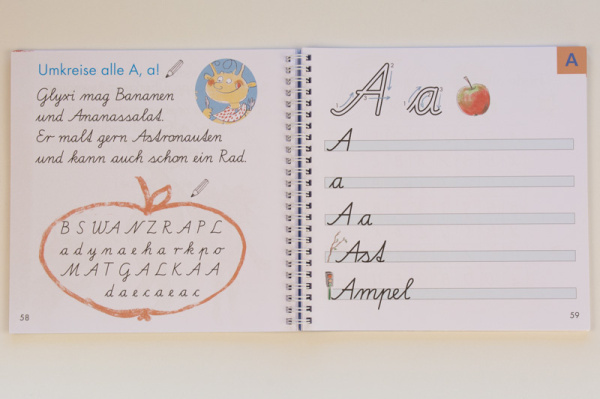 Umkreise alle A, a!
Glyxi mag Bananen
und Ananassalat.
Er malt gern Astronauten
und kann auch schon ein Rad.
B S W A N Z R A P L
a d y n a e h a r k p o
M A T G A L K A A
d a e c a e a c
58
A
1 2 3 A 1 2 a
A
a
A a
Ast
Ampel
59